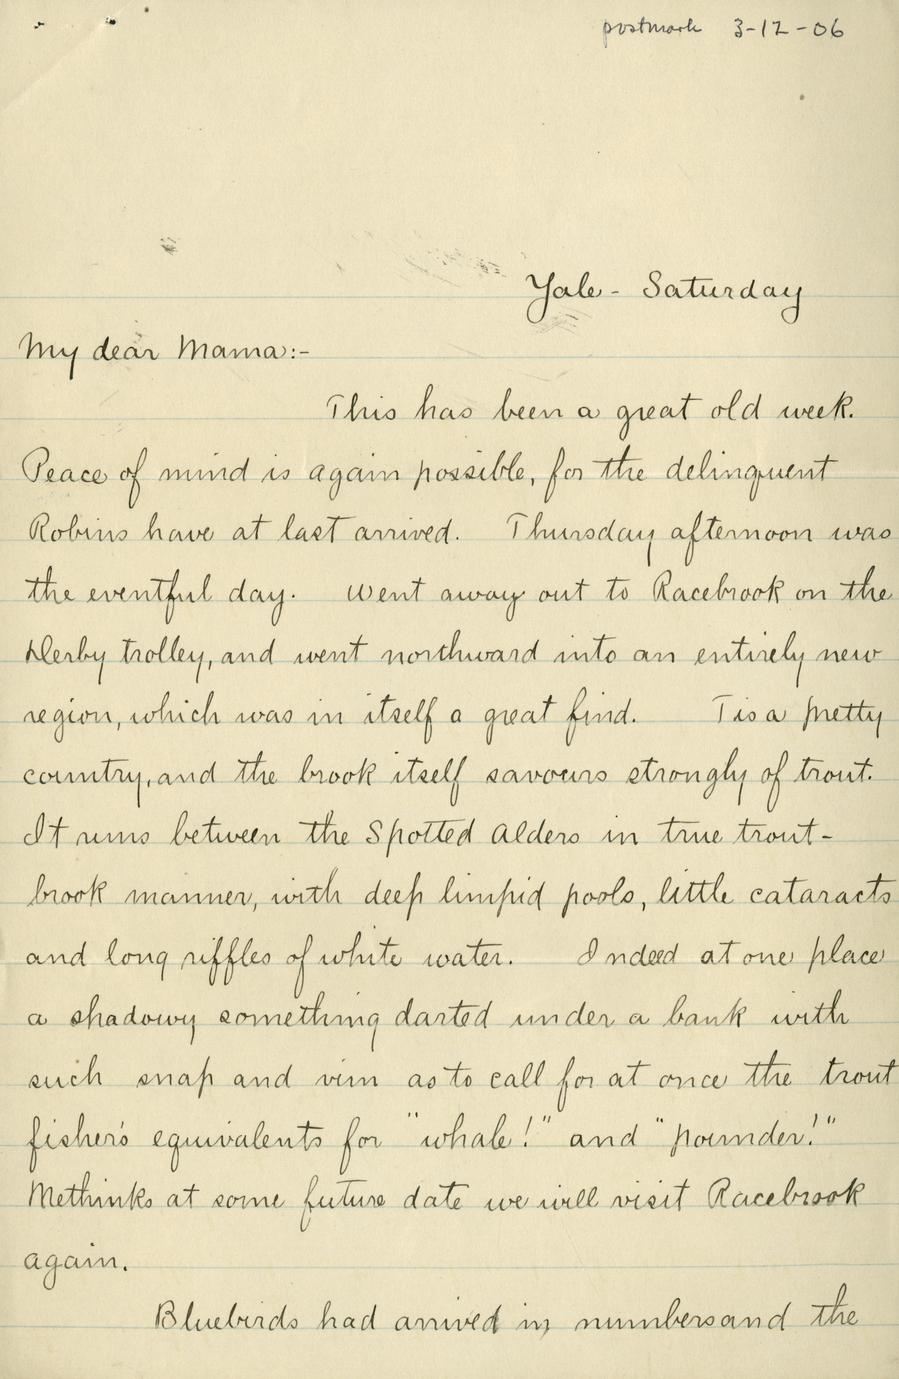 postmark 3-12-06
Yale - Saturday
My dear Mama:-
This has been a great old week.
Peace of mind is again possible, for the delinquent
Robins have at last arrived. Thursday afternoon was
the eventful day. Went away out to Racebrook on the
Derby trolley, and went northward into an entirely new
region, which was in itself a great find. Tis a pretty
country, and the brook itself savours strongly of trout.
It runs between the Spotted Alders in true trout-
brook manner, with deep limpid pools, little cataracts
and long riffles of white water. Indeed at one place
a shadowy something darted under a bank with
such snap and vim as to call for at once the trout
fisher's equivalents for "whale!" and "pounder!"
Methinks at some future date we will visit Racebrook
again.
Bluebirds had arrived in numbers and the